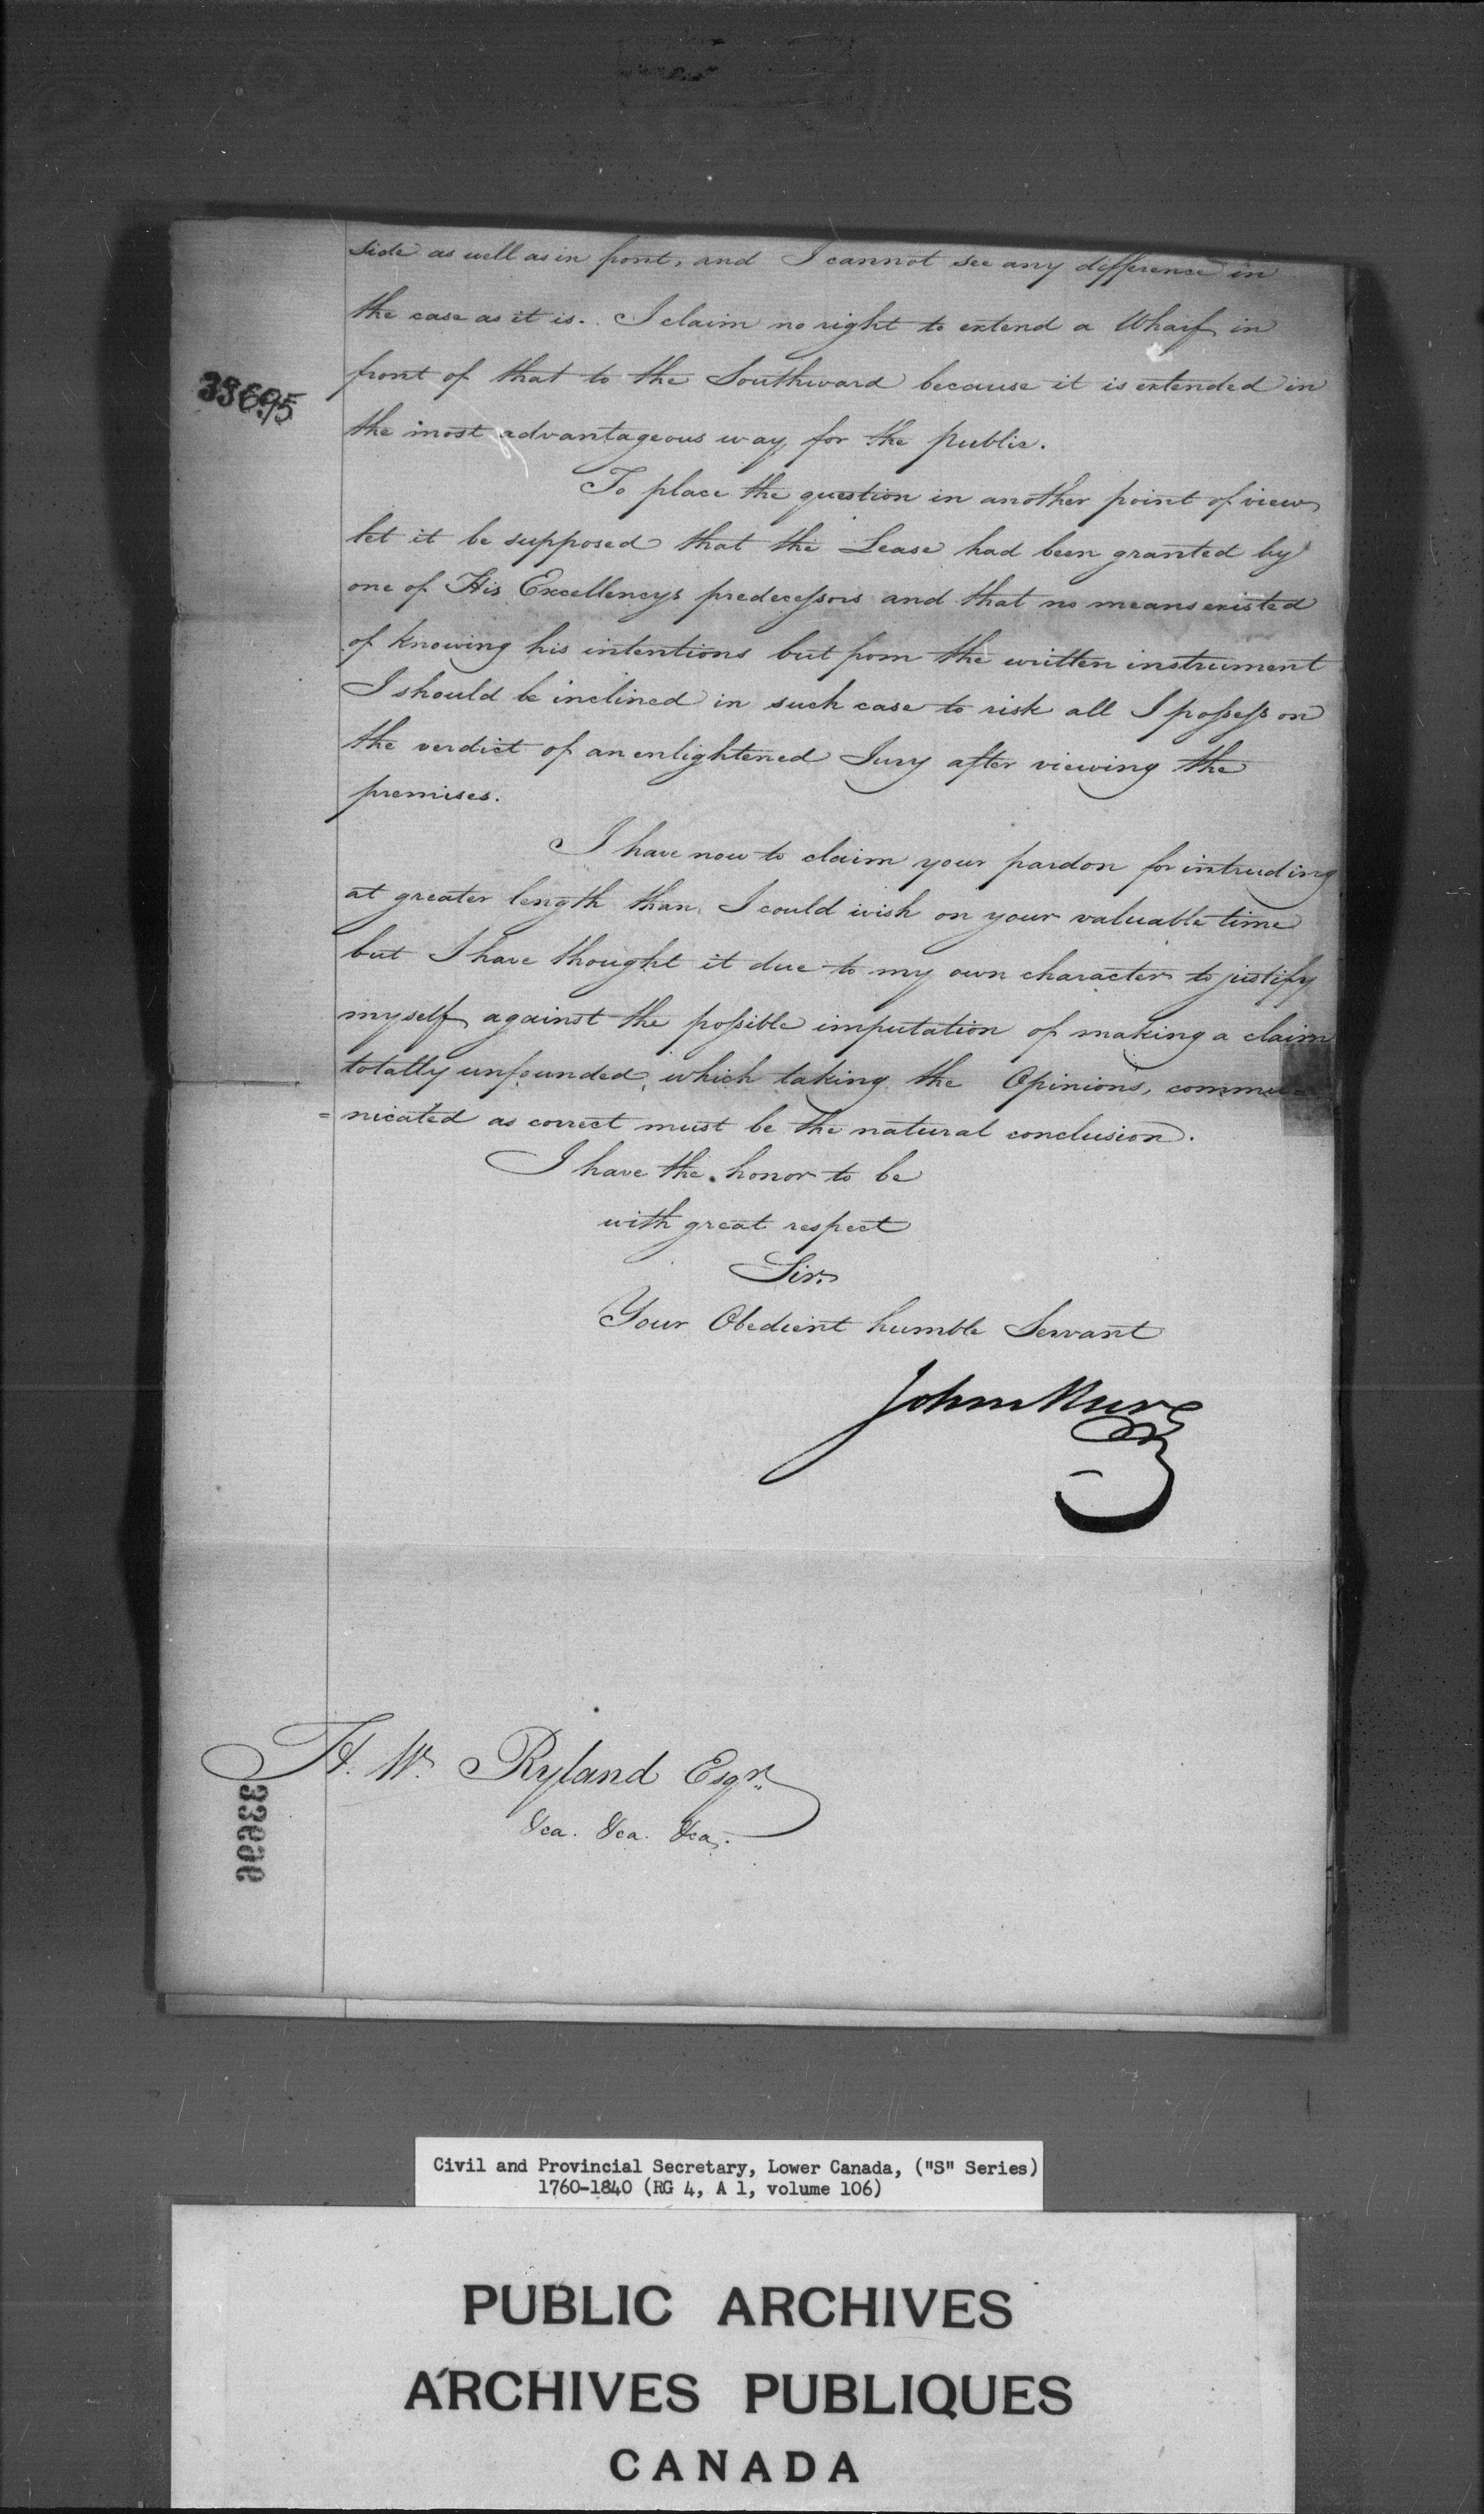 side as well as in front, and I cannot see any difference in
the case as it is. I claim no right to extend a Wharf in
front of that to the Southward because it is extended in
33695
the most advantageous way for the public.
To place the question in another point of view
let it be supposed that the Lease had been granted by
one of His Excellencys predecessors and that no means existed
of knowing his intentions but from the written instrument
I should be inclined in such case to risk all I possess on
the verdict of an enlightened Jury after viewing the
premises.
I have now to claim your pardon for intruding
at greater length than I could wish on your valuable time
but I have thought it due to my own character to justify
myself against the possible imputation of making a claim
totally unfounded, which taking the Opinions, commu=
=nicated as correct must be the natural conclusion.
I have the honor to be
with great respect
Sir.
Your Obedient humble Servant
John Mure
H. W. Ryland Esqr.
&ca. &ca. &ca.
33696
Civil and Provincial Secretary, Lower Canada, ("S" Series)
1760-1840 (RG 4, A 1, volume 106)
PUBLIC ARCHIVES
ARCHIVES PUBLIQUES
CANADA